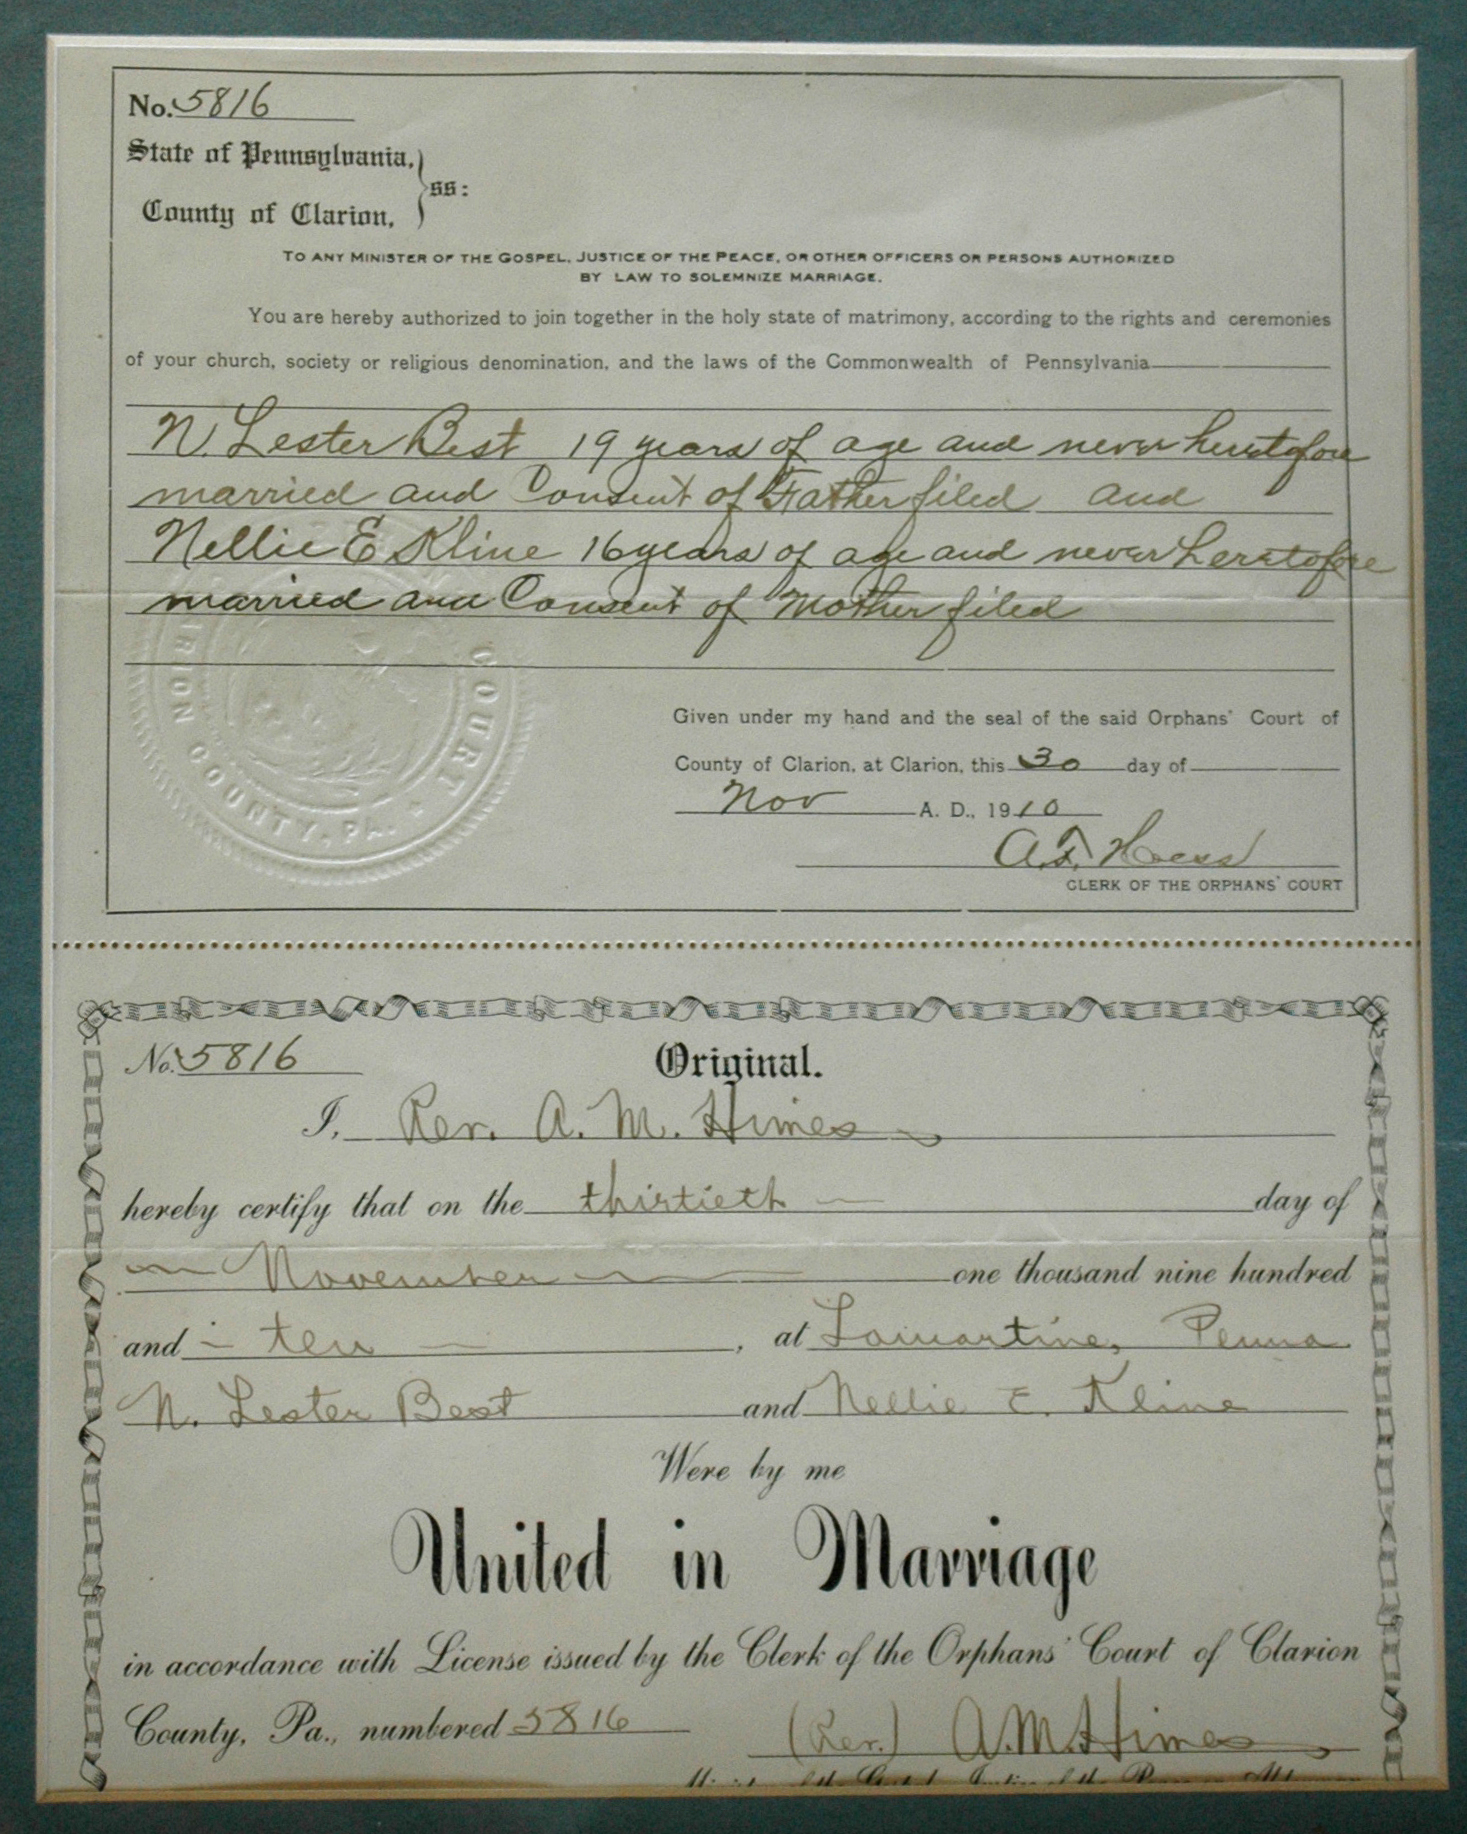 No. 5816
State of Pennsylvania,
ss:
County of Clarion,
TO ANY MINISTER OF THE GOSPEL, JUSTICE OF THE PEACE, OR OTHER OFFICERS OR PERSONS AUTHORIZED
BY LAW TO SOLEMNIZE MARRIAGE.
You are hereby authorized to join together in the holy state of matrimony, according to the rights and ceremonies
of your church, society or religious denomination, and the laws of the Commonwealth of Pennsylvania
N. Lester Best 19 years of age and never heretofore
married and Consent of Father filed and
Nellie E Kline 16 years of age and never heretofore
married and Consent of Mother filed
COURT
COUNTY, PA.
Given under my hand and the seal of the said Orphans' Court of
County of Clarion, at Clarion, this 30 day of
Nov A. D., 1910
A.F.
CLERK OF THE ORPHANS' COURT
No. 5816 Original.
I, Rev. A. M. Himes
hereby certify that on the thirtieth day of
November one thousand nine hundred
and ten, at Lamartine, Penna
N. Lester Best and Nellie E. Kline
Were by me
United in Marriage
in accordance with License issued by the Clerk of the Orphans' Court of Clarion
County, Pa., numbered 5816 (Rev.) A. M. Himes